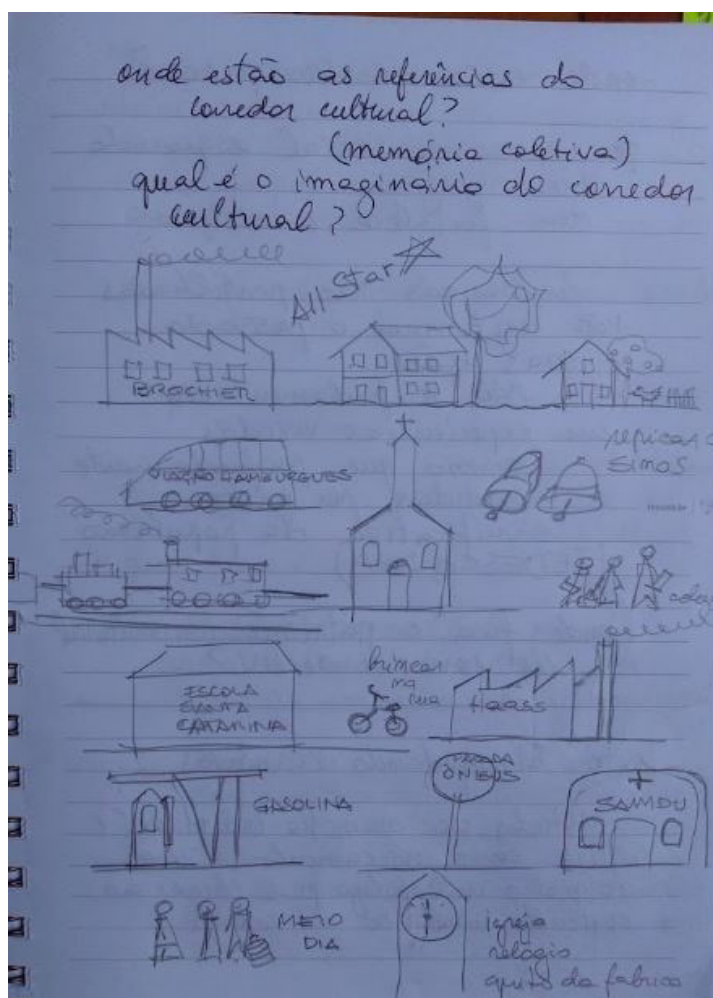 onde estão as referências do
corredor cultural?
(memória coletiva)
qual é o imaginário do corredor
cultural?
All Star
BROCHIER
VIAÇÃO HAMBURGUES
repicar
SINOS
ESCOLA
SANTA
CATARINA
brincar
na
rua
Haass
GASOLINA
PARADA
ÔNIBUS
SAMDU
MEIO
DIA
igreja
relógio
apito da fabrica